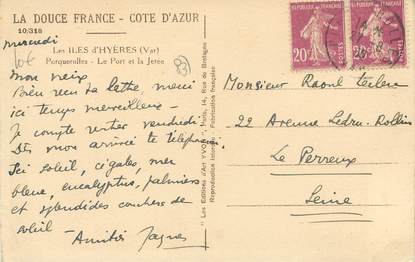 LA DOUCE FRANCE - COTE D'AZUR
10/318
mercredi
Les ILES d'HYÈRES (Var)
Porquerolles - Le Port et la Jetée
Mon vieux
Bien reçu ta lettre, merci
ici temps merveilleux -
Je compte rentrer vendredi.
Dès mon arrivée te téléphonerai.
Ici soleil, cigales, mer
bleue, eucalyptus, palmiers
et splendides couchers de
soleil - Amitiés Jacques
" Les Editions d'Art YVON " Paris, 14, Rue de Bretagne
Reproduction interdite - Fabrication française
20c
POSTES
20c
Monsieur Raoul
22 Avenue Ledru-Rollin
Le Perreux
Seine